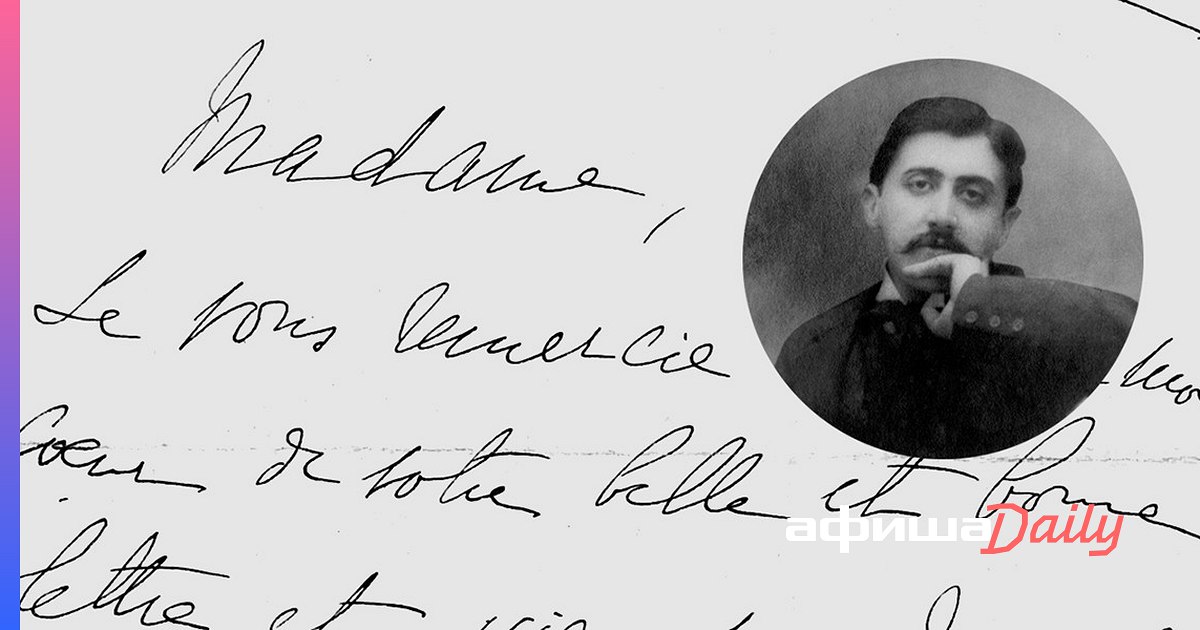 Madame,
Je vous remercie
cœur de votre belle et bonne
lettre et
афишаDaily